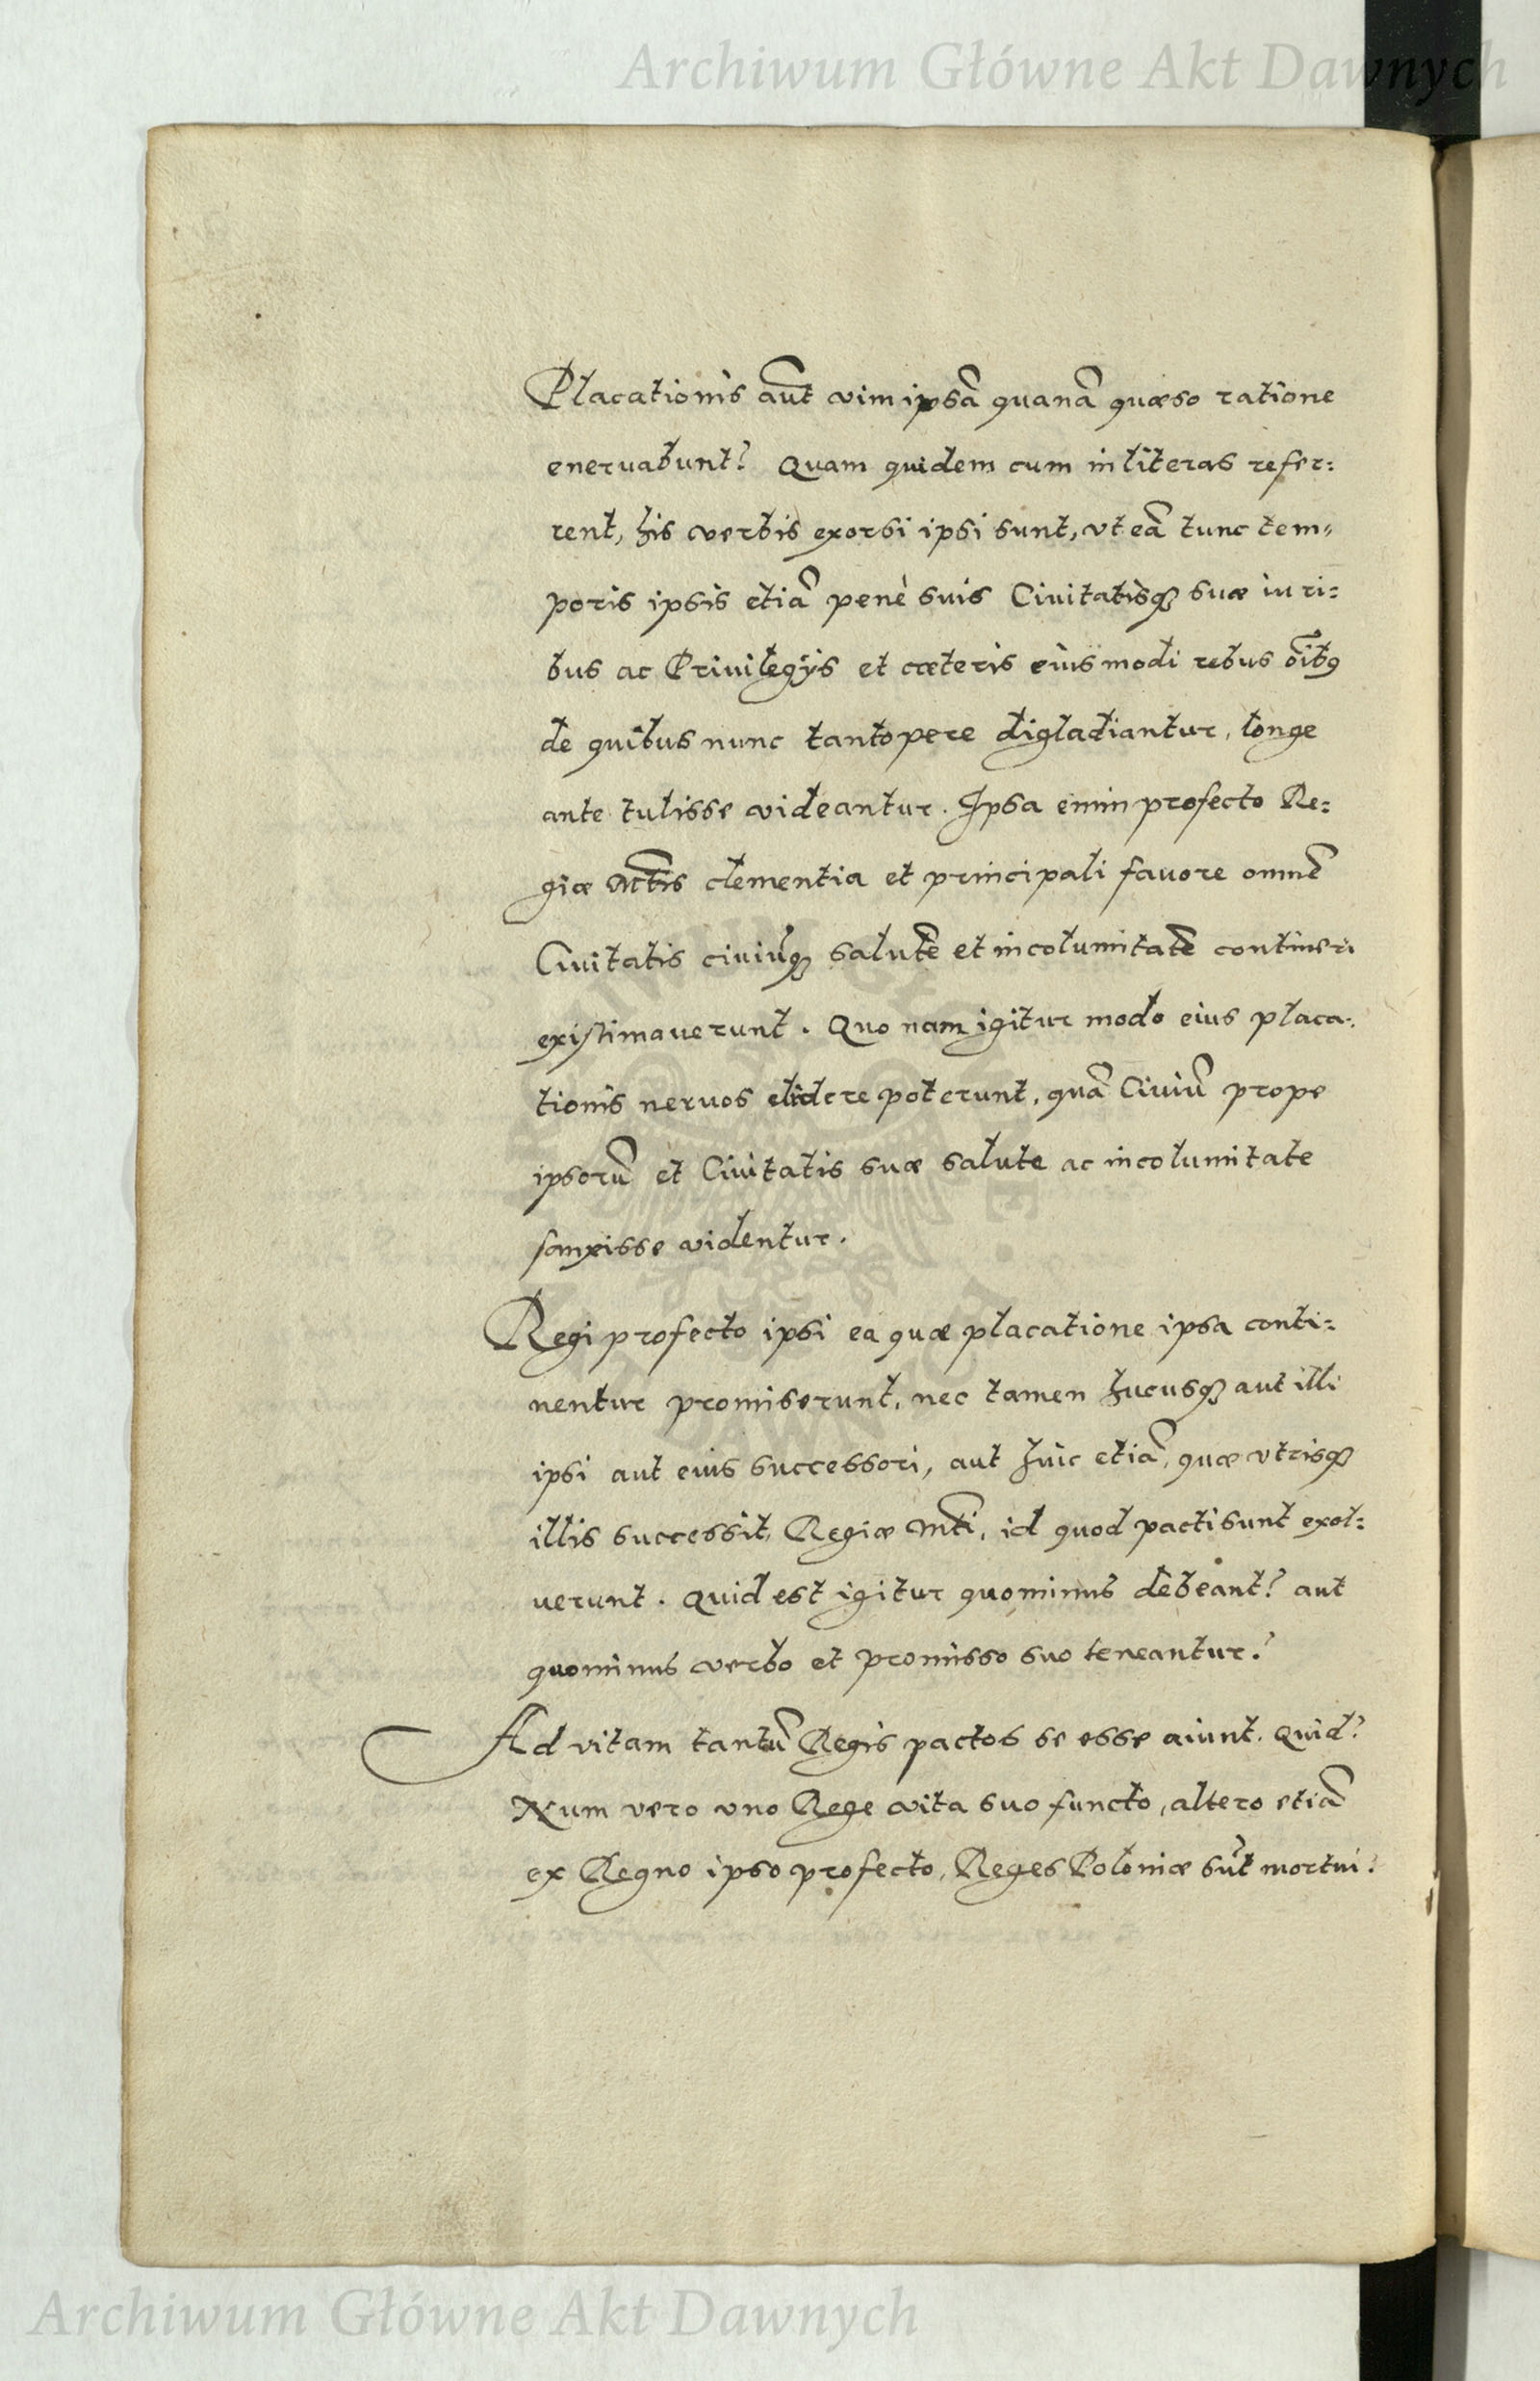 Archiwum Główne Akt Dawnych
Placationis aūt vim ipsā quanā quæso ratione
eneruabunt? Quam quidem cum in literas refer=
rent, his verbis exorsi ipsi sunt, vt eā tunc tem=
poris ipsis etiā penè suis Ciuitatisq₃ suæ iuri=
bus ac Priuilegijs et cæteris eiusmodi rebus oībꝰ
de quibus nunc tantopere digladiantur, longe
ante tulisse videantur. Ipsa enim profecto Re=
giæ Mtis clementia et principali fauore omnē
Ciuitatis ciuiūq₃ salutē et incolumitatē contineri
existimauerunt. Quo nam igitur modo eius placa-
tionis neruos elidere poterunt, quā Ciuiū prope
ipsorū et Ciuitatis suæ salute ac incolumitate
sanxisse videntur.
Regi profecto ipsi ea quæ placatione ipsa conti=
nentur promiserunt, nec tamen hucusq₃ aut illi
ipsi aut eius successori, aut huic etiā, quæ vtrisq₃
illis successit, Regiæ Mti, id quod pacti sunt exol=
uerunt. Quid est igitur quominus debeant? aut
quominus verbo et promisso suo teneantur?
Ad vitam tantū Regis pactos se esse aiunt. Quid?
Num vero vno Rege vita suo functo, altero etiā
ex Regno ipso profecto, Reges Poloniæ sūt mortui?
Archiwum Główne Akt Dawnych